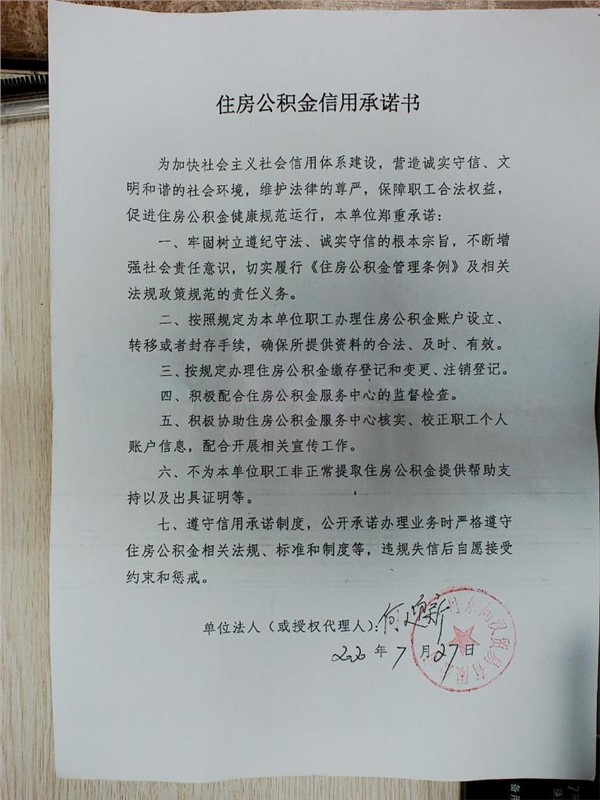 住房公积金信用承诺书
为加快社会主义社会信用体系建设，营造诚实守信、文
明和谐的社会环境，维护法律的尊严，保障职工合法权益，
促进住房公积金健康规范运行，本单位郑重承诺：
一、牢固树立遵纪守法、诚实守信的根本宗旨，不断增
强社会责任意识，切实履行《住房公积金管理条例》及相关
法规政策规范的责任义务。
二、按照规定为本单位职工办理住房公积金账户设立、
转移或者封存手续，确保所提供资料的合法、及时、有效。
三、按规定办理住房公积金缴存登记和变更、注销登记。
四、积极配合住房公积金服务中心的监督检查。
五、积极协助住房公积金服务中心核实、校正职工个人
账户信息，配合开展相关宣传工作。
六、不为本单位职工非正常提取住房公积金提供帮助支
持以及出具证明等。
七、遵守信用承诺制度，公开承诺办理业务时严格遵守
住房公积金相关法规、标准和制度等，违规失信后自愿接受
约束和惩戒。
单位法人（或授权代理人）：何迎新
年 7 月 27 日